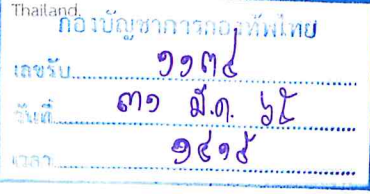 Thailand.
กองบัญชาการกองทัพไทย
เลขรับ ๑๑๓๔
วันที่ ๓๑ มี.ค. ๖๕
เวลา ๑๔๑๕